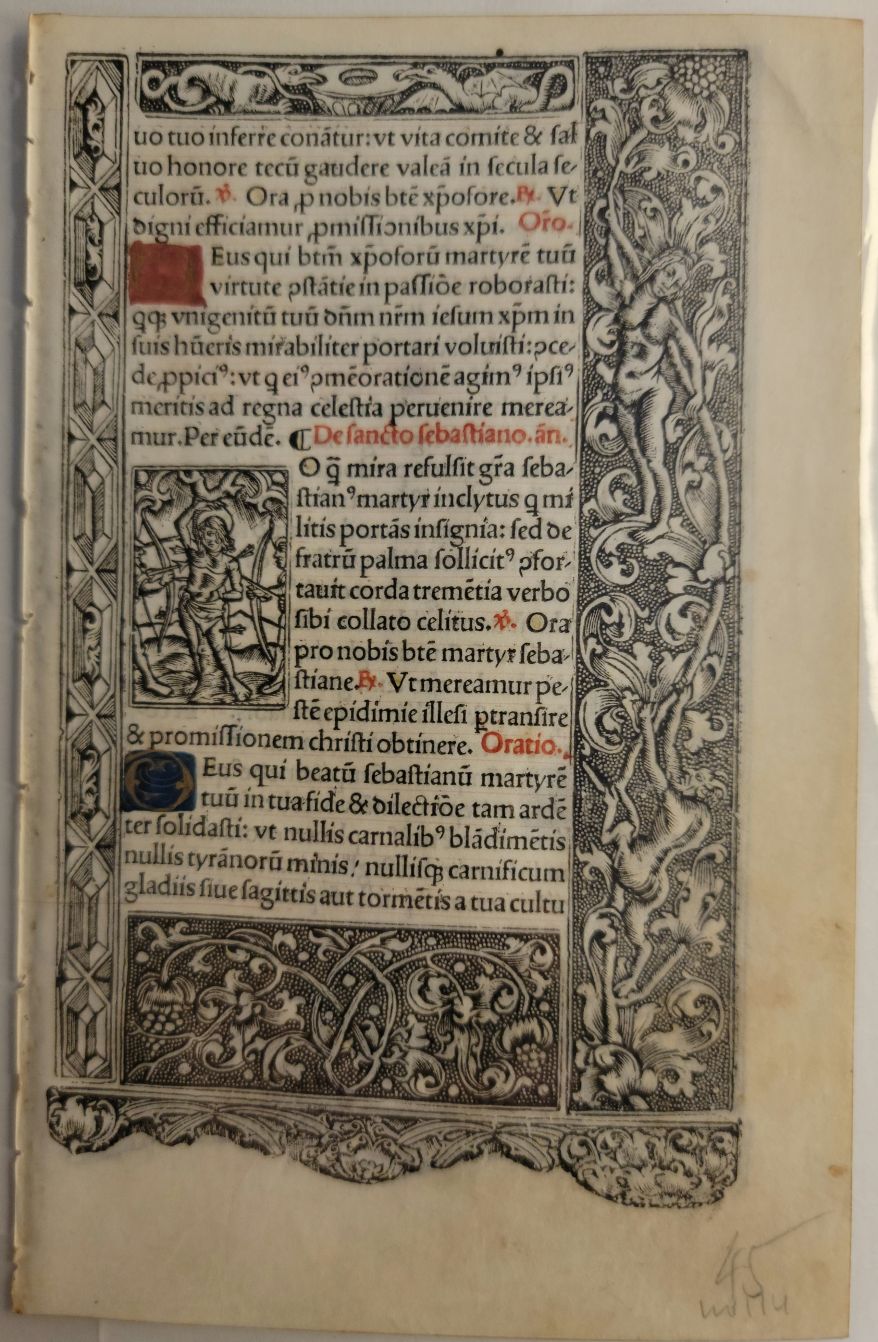 uo tuo inferre conãtur: vt vita comite & sal
uo honore tecũ gaudere valeã in secula se⸗
culorũ. ℣. Ora ꝓ nobis btẽ xp̃ofore. ℟. Vt
digni efficiamur ꝓmissionibus xp̃i. Orõ.
Eus qui btm̃ xp̃oforũ martyrẽ tuũ
virtute ꝯstãtie in passiõe roborasti:
qꝗ vnigenitũ tuũ dñm nr̃m iesum xp̃m in
suis hũeris mirabiliter portari voluisti: ꝯce⸗
de ꝓpiciꝰ: vt q eiꝰ ꝯmẽorationẽ agimꝰ ipsiꝰ
meritis ad regna celestia peruenire merea⸗
mur. Per eũdẽ. ¶ De sancto sebastiano. ãn.
O q̃ mira refulsit gr̃a seba⸗
stianꝰ martyr inclytus q mi
litis portãs insignia: sed de
fratrũ palma sollicitꝰ ꝯfor⸗
tauit corda tremẽtia verbo
sibi collato celitus. ℣. Ora
pro nobis btẽ martyr seba⸗
stiane. ℟. Vt mereamur pe⸗
stẽ epidimie illesi ꝑtransire
& promissionem christi obtinere. Oratio.
Eus qui beatũ sebastianũ martyrẽ
tuũ in tua fide & dilectiõe tam ardẽ
ter solidasti: vt nullis carnalibꝰ blãdimẽtis
nullis tyrãnorũ minis: nullisqꝫ carnificum
gladiis siue sagittis aut tormẽtis a tua cultu
45